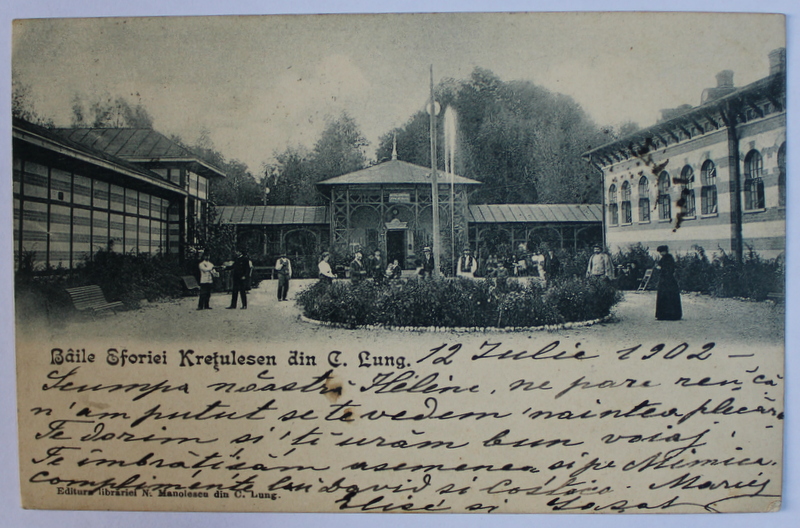 Băile Eforiei Krețulesen din C. Lung. 12 Iulie 1902 –
Scumpa nóastră Hélène, ne pare reŭ că
n'am putut se te vedem 'naintea plecăr
Te dorim si'ti urăm bun voiaj!
Te îmbrățisăm asemenea si pe Mimica.
complimente lui David si Costica. Marie,
Elise si
Editura librăriei N. Manolescu din C. Lung.